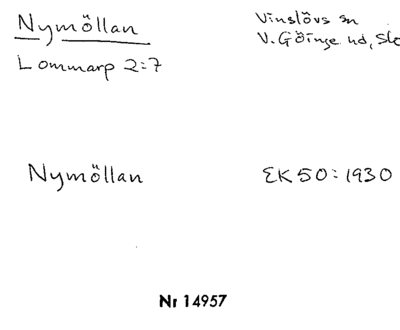 Nymöllan
Vinslövs sn
V. Göinge hd, Sk
Lommarp 2:7
Nymöllan
EK 50: 1930
Nr 14957